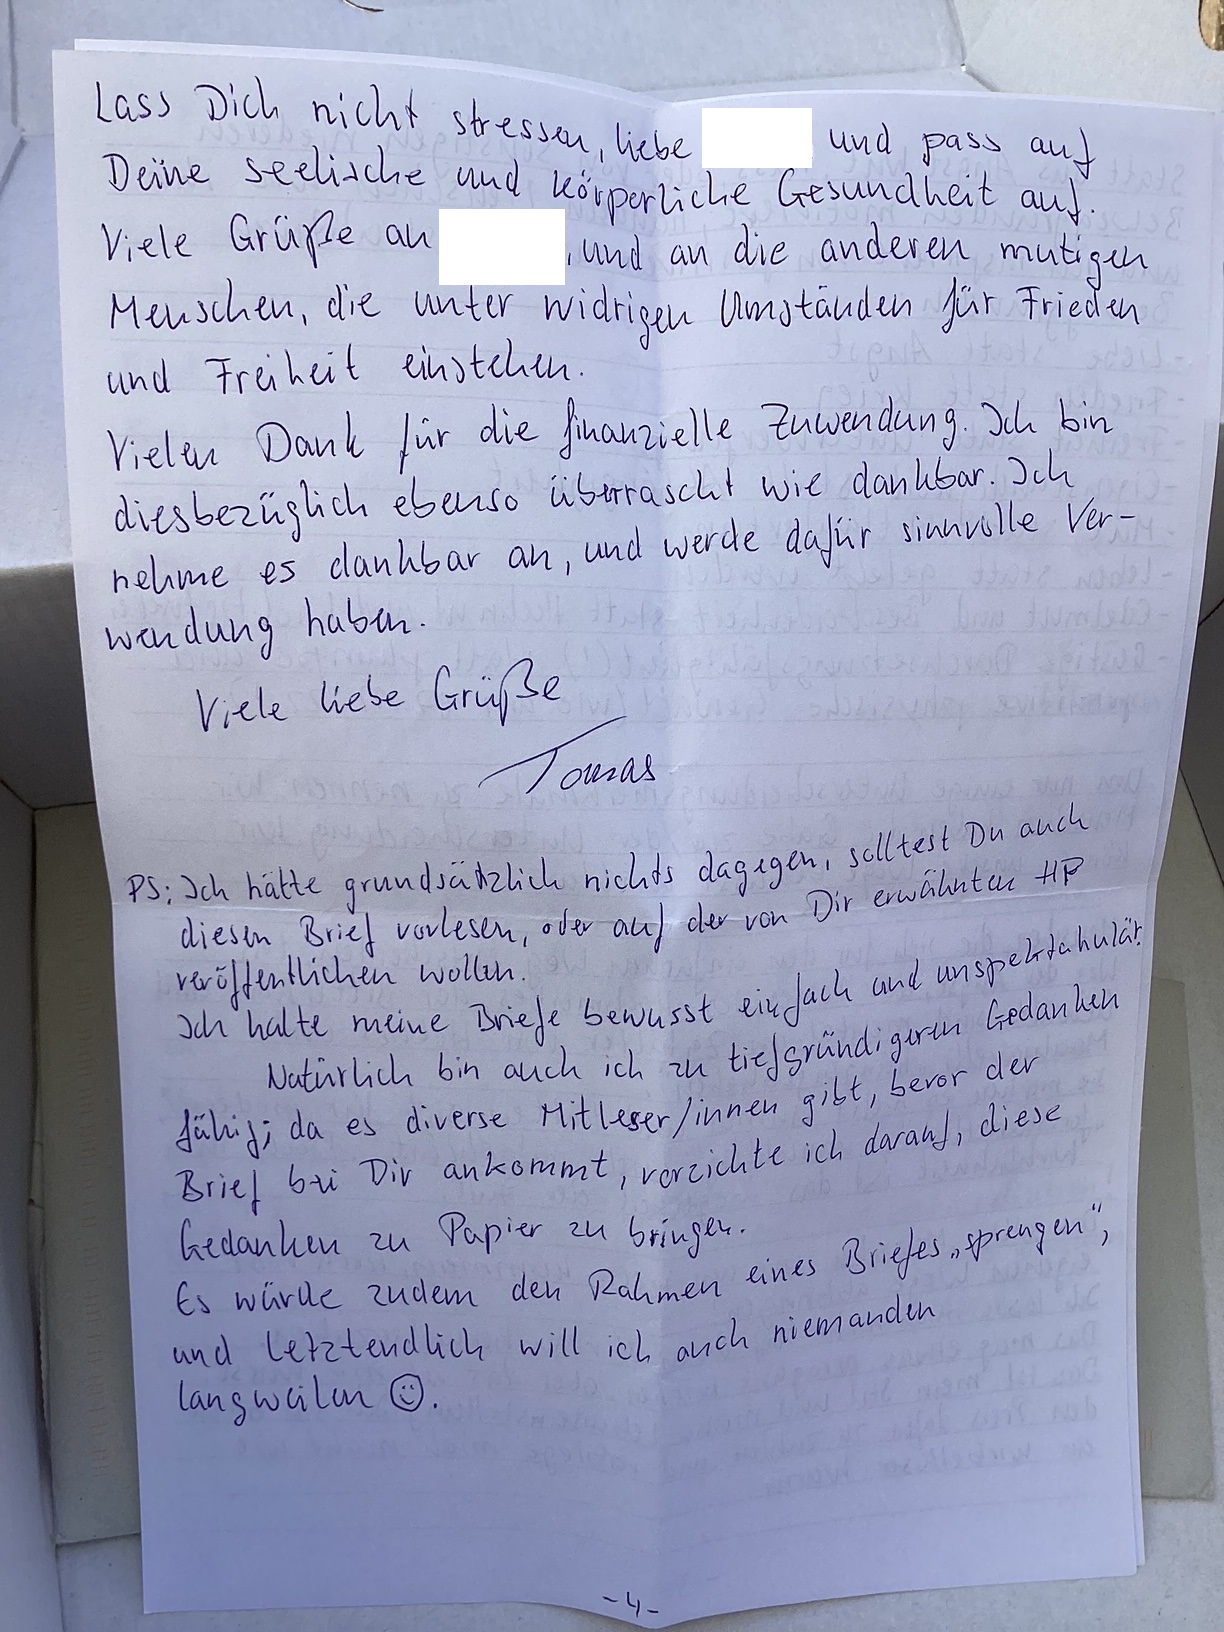 Lass Dich nicht stressen, liebe und pass auf
Deine seelische und körperliche Gesundheit auf.
Viele Grüße an , und an die anderen mutigen
Menschen, die unter widrigen Umständen für Frieden
und Freiheit einstehen.
Vielen Dank für die finanzielle Zuwendung. Ich bin
diesbezüglich ebenso überrascht wie dankbar. Ich
nehme es dankbar an, und werde dafür sinnvolle Ver-
wendung haben.
Viele liebe Grüße
Tomas
PS: Ich hätte grundsätzlich nichts dagegen, solltest Du auch
diesen Brief vorlesen, oder auf der von Dir erwähnten HP
veröffentlichen wollen.
Ich halte meine Briefe bewusst einfach und unspektakulär.
Natürlich bin auch ich zu tiefgründigeren Gedanken
fähig; da es diverse Mitleser/innen gibt, bevor der
Brief bei Dir ankommt, verzichte ich darauf, diese
Gedanken zu Papier zu bringen.
Es würde zudem den Rahmen eines Briefes „sprengen",
und letztendlich will ich auch niemanden
langweilen ☺.
-4-